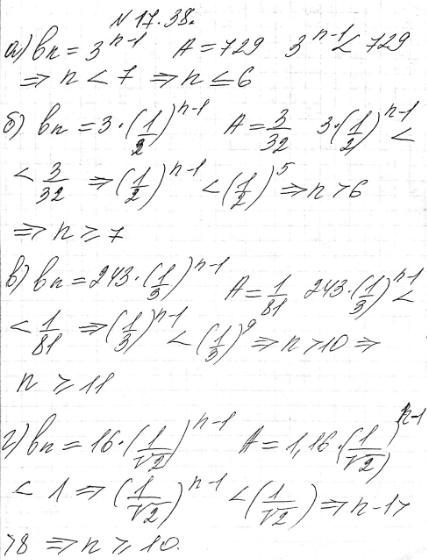 N 17.38.
а) bn = 3^(n-1) A = 729 3^(n-1) < 729
⇒ n < 7 ⇒ n ≤ 6
б) bn = 3·(1/2)^(n-1) A = 3/32 3·(1/2)^(n-1) <
< 3/32 ⇒ (1/2)^(n-1) < (1/2)^5 ⇒ n > 6
⇒ n ≥ 7
в) bn = 243·(1/3)^(n-1) A = 1/81 243·(1/3)^(n-1) <
< 1/81 ⇒ (1/3)^(n-1) < (1/3)^9 ⇒ n > 10 ⇒
n ≥ 11
г) bn = 16·(1/√2)^(n-1) A = 1, 16·(1/√2)^(n-1)
< 1 ⇒ (1/√2)^(n-1) < (1/√2) ⇒ n-1 >
> 8 ⇒ n ≥ 10.